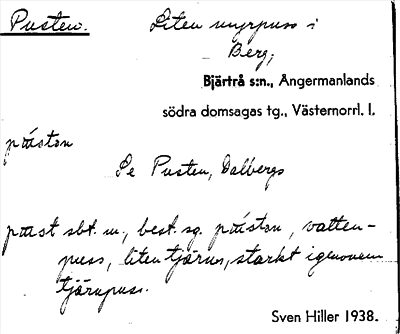 Pusten. Liten myrpuss i
Berg;
Bjärtrå s:n., Ångermanlands
södra domsagas tg., Västernorrl. l.
påston
Se Pusten, Dalbergs
past sbt. m., best. sg. påston, vatten-
puss, liten tjärn, starkt igenvuxen
tjärnpuss.
Sven Hiller 1938.